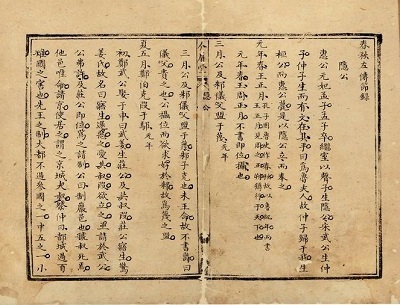 春秋左傳節錄
隱公
惠公元妃孟子孟子卒繼室以聲子生隱公宋武公生仲
子仲子生而有文在其手曰爲魯夫人故仲子歸于我生
桓公而惠公薨是以隱公立而奉之
元年春王正月
元年春王周正月不書即位攝也
三月公及邾儀父盟于蔑元年
隱公
三月公及邾儀父盟于蔑邾子克也未王命故不書爵曰
儀父貴之也公攝位而欲求好於邾故爲蔑之盟
夏五月鄭伯克段于鄢元年
初鄭武公娶于申曰武姜生莊公及共叔段莊公寤生驚
姜氏故名曰寤生遂惡之愛共叔段欲立之亟請於武公
公弗許及莊公即位爲之請制公曰制巖邑也虢叔死焉
他邑唯命請京使居之謂之京城大叔祭仲曰都城過百
雉國之害也先王之制大都不過參國之一中五之一小